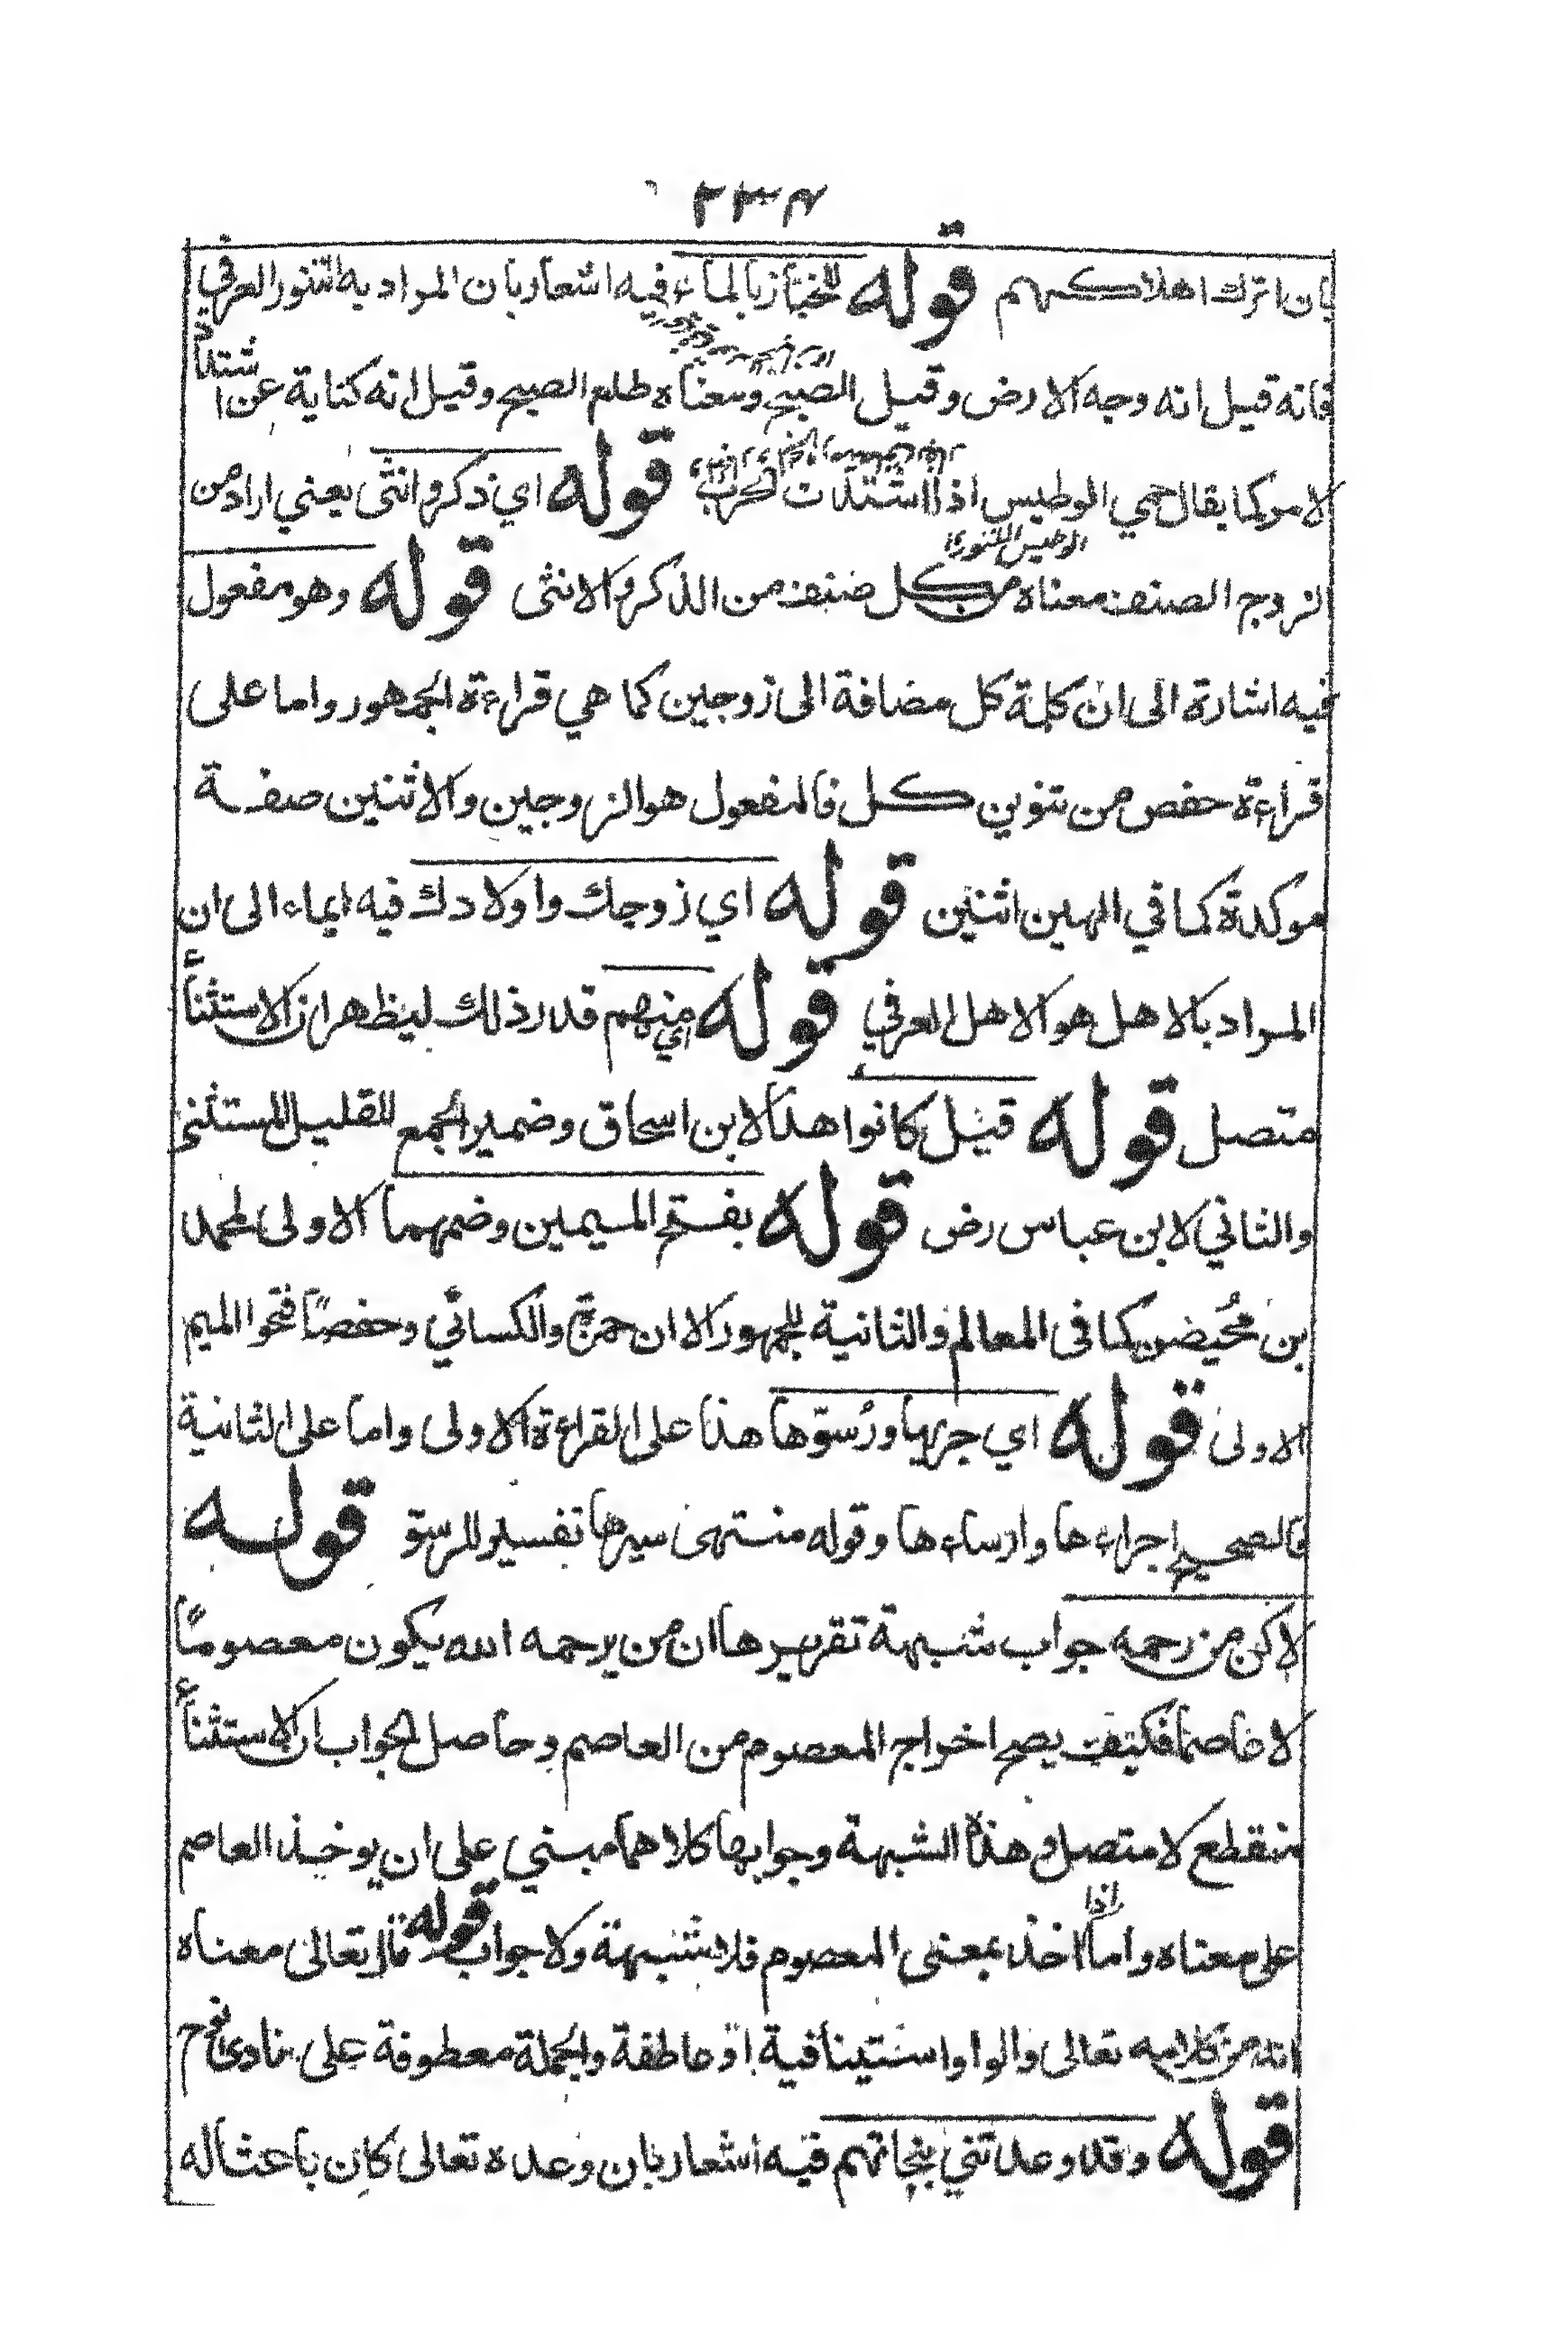 ٢٣٤
بان اترك اهلاكهم قوله للخباز بالماء فيه اشعار بان المراد به التنور العرفي
فانه قيل انه وجه الارض وقيل الصبح ومعناه طلع الصبح وقيل انه كناية عن اشتداد
الامر كما يقال حمي الوطيس اذا اشتدت الحرب قوله اي ذكر وانثى يعني اراد من
الوطيس التنور
الزوج الصنف معناه من كل صنف من الذكر والانثى قوله وهو مفعول
فيه اشارة الى ان كلمة كل مضافة الى زوجين كما هي قراءة الجمهور واما على
قراءة حفص من تنوين كل فالمفعول هو الزوجين والاثنين صفة
موكدة كما في الهين اثنين قوله اي زوجك واولادك فيه ايماء الى ان
المراد بالاهل هو الاهل العرفي قوله اي منهم قدر ذلك ليظهر ان الاستثناء
متصل قوله قيل كانوا هذا لابن اسحاق وضمير الجمع للقليل المستثنى
والثاني لابن عباس رض قوله بفتح الميمين وضمهما الاولى لمحمد
بن مُحيضن كما في المعالم والثانية للجمهور الا ان حمزة والكسائي وحفصًا فتحوا الميم
الاولى قوله اي جريها ورُسوّها هذا على القراءة الاولى واما على الثانية
فالصحيح اجراءها وارساءها وقوله منتهى سيرها تفسير للرسوّ قوله
لاكن من رحمه جواب شبهة تقريرها ان من يرحمه الله يكون معصومًا
لا عاصما فكيف يصح اخراج المعصوم من العاصم وحاصل الجواب ان الاستثناء
منقطع لا متصل وهذه الشبهة وجوابها كلاهما مبني على ان يوخذ العاصم
على معناه واما اذا اخذ بمعنى المعصوم فلا شبهة ولا جواب قوله قال تعالى معناه
انه من كلامه تعالى والواو استينافية او عاطفة والجملة معطوفة على نادى نوح
قوله وقد وعدتني بنجاتهم فيه اشعار بان وعده تعالى كان باعثا له